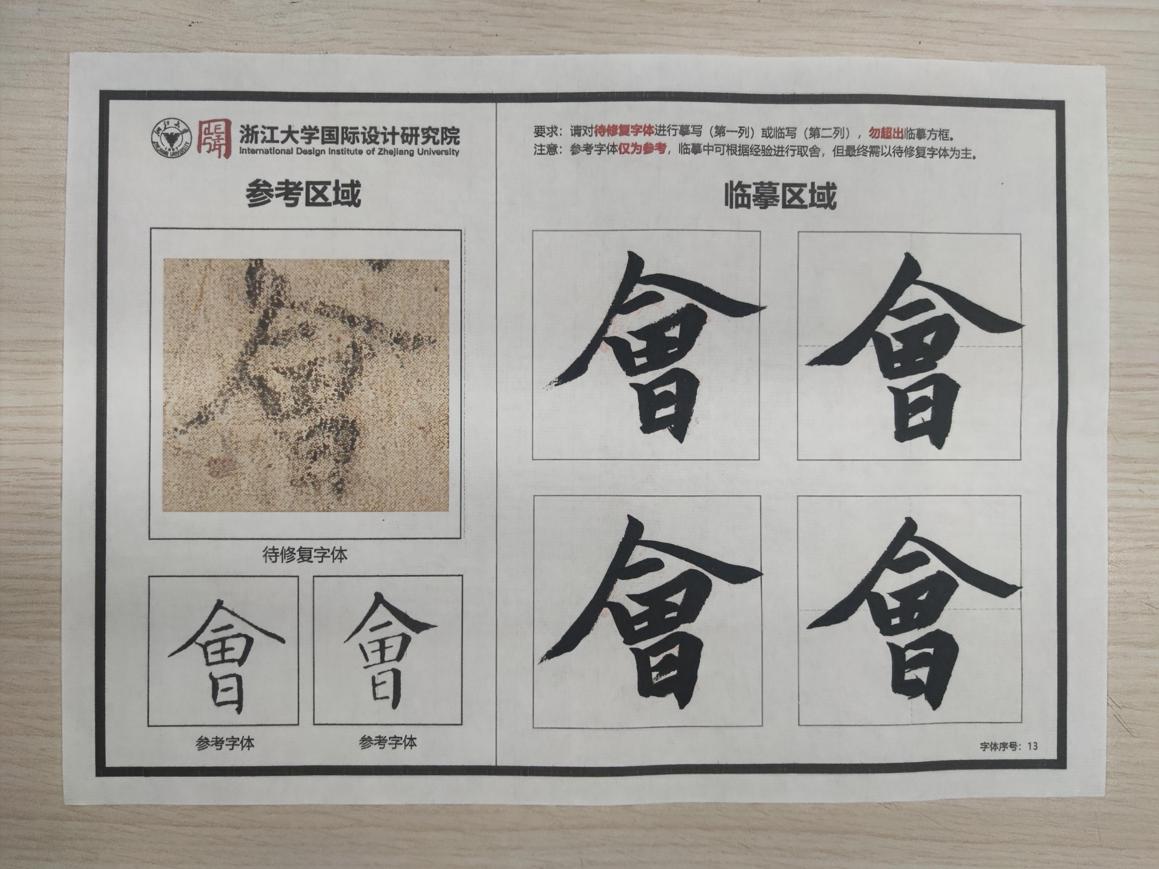 浙江大学国际设计研究院
International Design Institute of Zhejiang University
参考区域
待修复字体
會
會
参考字体
参考字体
要求：请对待修复字体进行摹写（第一列）或临写（第二列），勿超出临摹方框。
注意：参考字体仅为参考，临摹中可根据经验进行取舍，但最终需以待修复字体为主。
临摹区域
會
會
會
會
字体序号：13